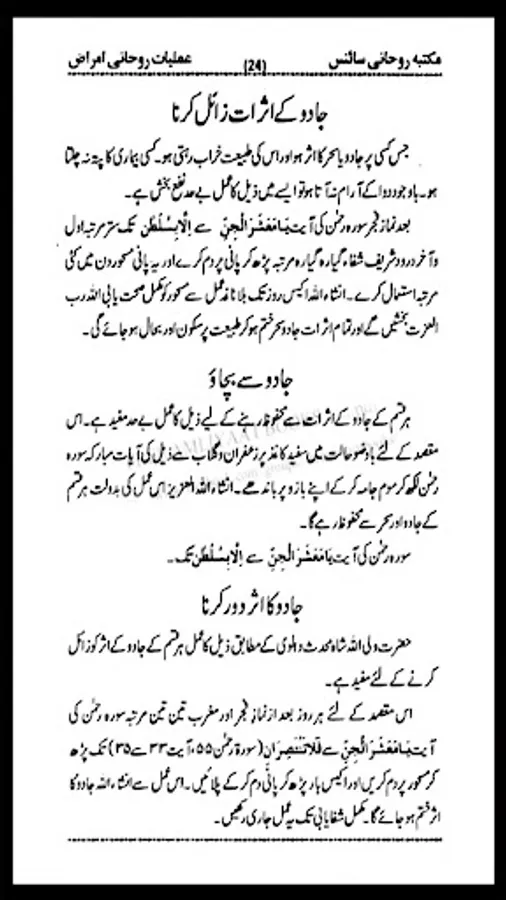 مکتبہ روحانی سائنس (24) عملیات روحانی امراض
جادو کے اثرات زائل کرنا
جس کسی پر جادو یا سحر کا اثر ہو اور اس کی طبیعت خراب رہتی ہو۔ کسی بیماری کا پتہ نہ چلتا
ہو۔ باوجود دوا کے آرام نہ آتا ہو تو ایسے میں ذیل کا عمل بے حد نفع بخش ہے۔
بعد نماز فجر سورہ رحمٰن کی آیت یَا مَعْشَرَ الْجِنِّ سے اِلَّا بِسُلْطٰن تک ستر مرتبہ اول
و آخر درود شریف شفاء گیارہ گیارہ مرتبہ پڑھ کر پانی پر دم کرے اور یہ پانی مسحور دن میں کئی
مرتبہ استعمال کرے۔ انشاء اللہ اکیس روز تک بلا ناغہ عمل سے مسحور کو مکمل صحت یابی اللہ رب
العزت بخشیں گے اور تمام اثرات جادو سحر ختم ہو کر طبیعت پر سکون اور بحال ہو جائے گی۔
جادو سے بچاؤ
ہر قسم کے جادو کے اثرات سے محفوظ رہنے کے لیے ذیل کا عمل بے حد مفید ہے۔ اس
مقصد کے لئے باوضو حالت میں سفید کاغذ پر زعفران و گلاب سے ذیل کی آیات مبارکہ سورہ
رحمٰن لکھ کر موم جامہ کر کے اپنے بازو پر باندھے۔ انشاء اللہ العزیز اس عمل کی بدولت ہر قسم
کے جادو اور سحر سے محفوظ رہے گا۔
سورہ رحمٰن کی آیت یَا مَعْشَرَ الْجِنِّ سے اِلَّا بِسُلْطٰن تک۔
جادو کا اثر دور کرنا
حضرت ولی اللہ شاہ محدث دہلوی کے مطابق ذیل کا عمل ہر قسم کے جادو کے اثر کو زائل
کرنے کے لئے مفید ہے۔
اس مقصد کے لئے ہر روز بعد از نماز فجر اور مغرب تین تین مرتبہ سورہ رحمٰن کی
آیت یَا مَعْشَرَ الْجِنِّ سے فَلَا تَنْتَصِرَانِ (سورۃ رحمٰن ۵۵، آیت ۳۳ سے ۳۵) تک پڑھ
کر مسحور پر دم کریں اور اکیس بار پڑھ کر پانی دم کر کے پلائیں۔ اس عمل سے انشاء اللہ جادو کا
اثر ختم ہو جائے گا۔ مکمل شفایابی تک یہ عمل جاری رکھیں۔